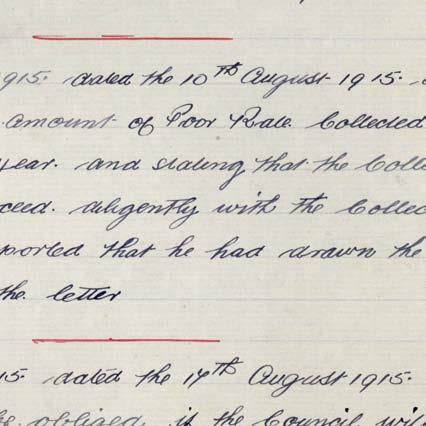 1915. dated the 10th August 1915.
amount of Poor Rate Collected
year. and stating that the Colle
ceed. diligently with the Collec
ported that he had drawn the
the letter
15. dated the 17th August 1915.
be obliged if the Council wil